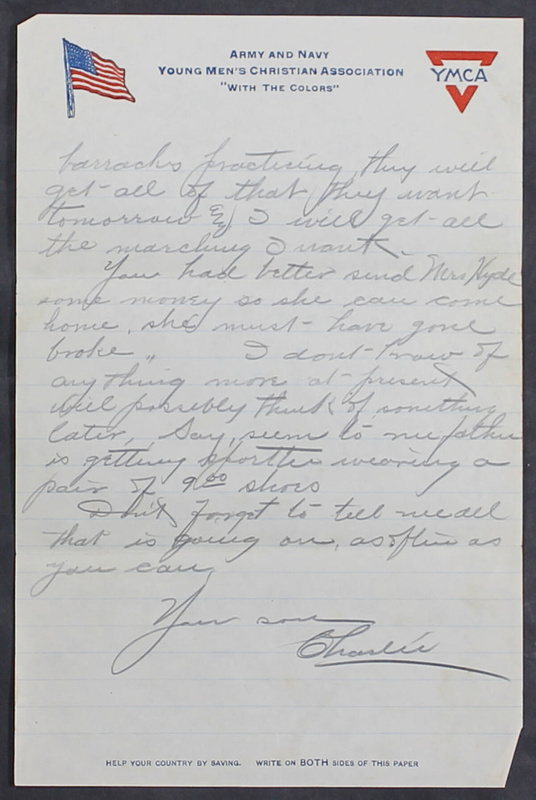 ARMY AND NAVY
YOUNG MEN'S CHRISTIAN ASSOCIATION
"WITH THE COLORS"
YMCA
barracks practicing, they will
get all of that they want
tomorrow & I will get all
the marching I want.
You had better send Mrs Hyde
some money so she can come
home, she must have gone
broke,, I dont know of
anything more at present
will possibly think of something
later, Say, seem to me father
is getting sporttie wearing a
pair of 9.00 shoes
Don't forget to tell me all
that is going on, as often as
you can,
Your son
Charlie
HELP YOUR COUNTRY BY SAVING. WRITE ON BOTH SIDES OF THIS PAPER